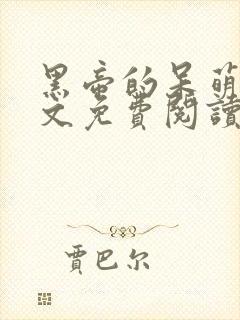 黑帝的呆萌
文免費閱讀
賈巴尔